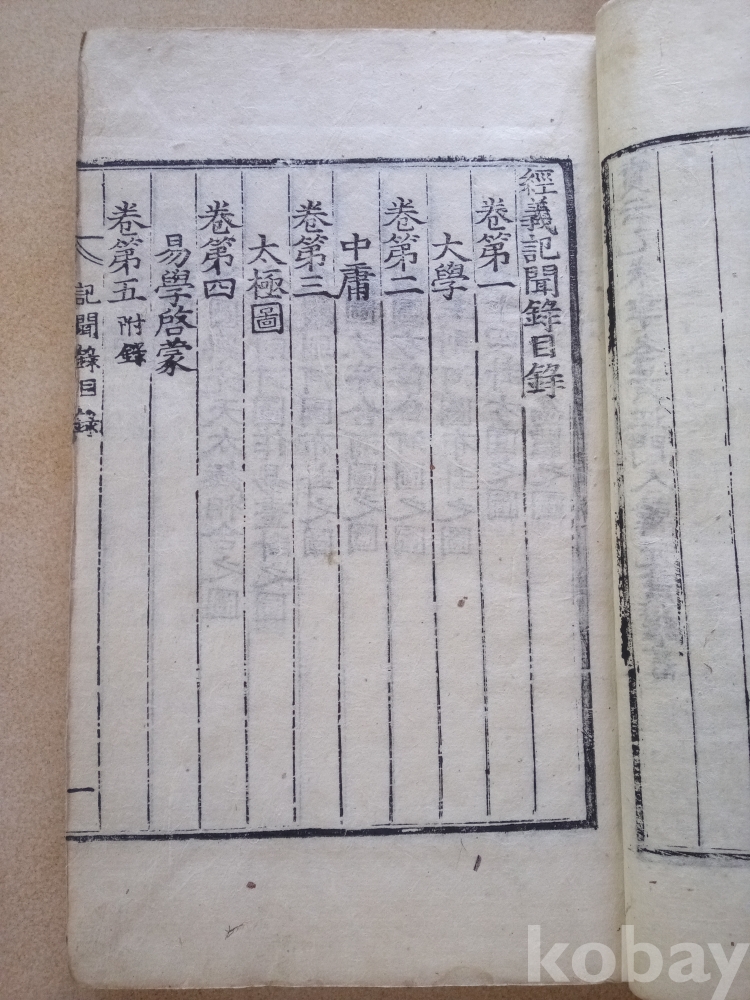 經義記聞錄目錄
卷第一
大學
卷第二
中庸
卷第三
太極圖
卷第四
易學啓蒙
卷第五 附錄
記聞錄目錄
一
kobay